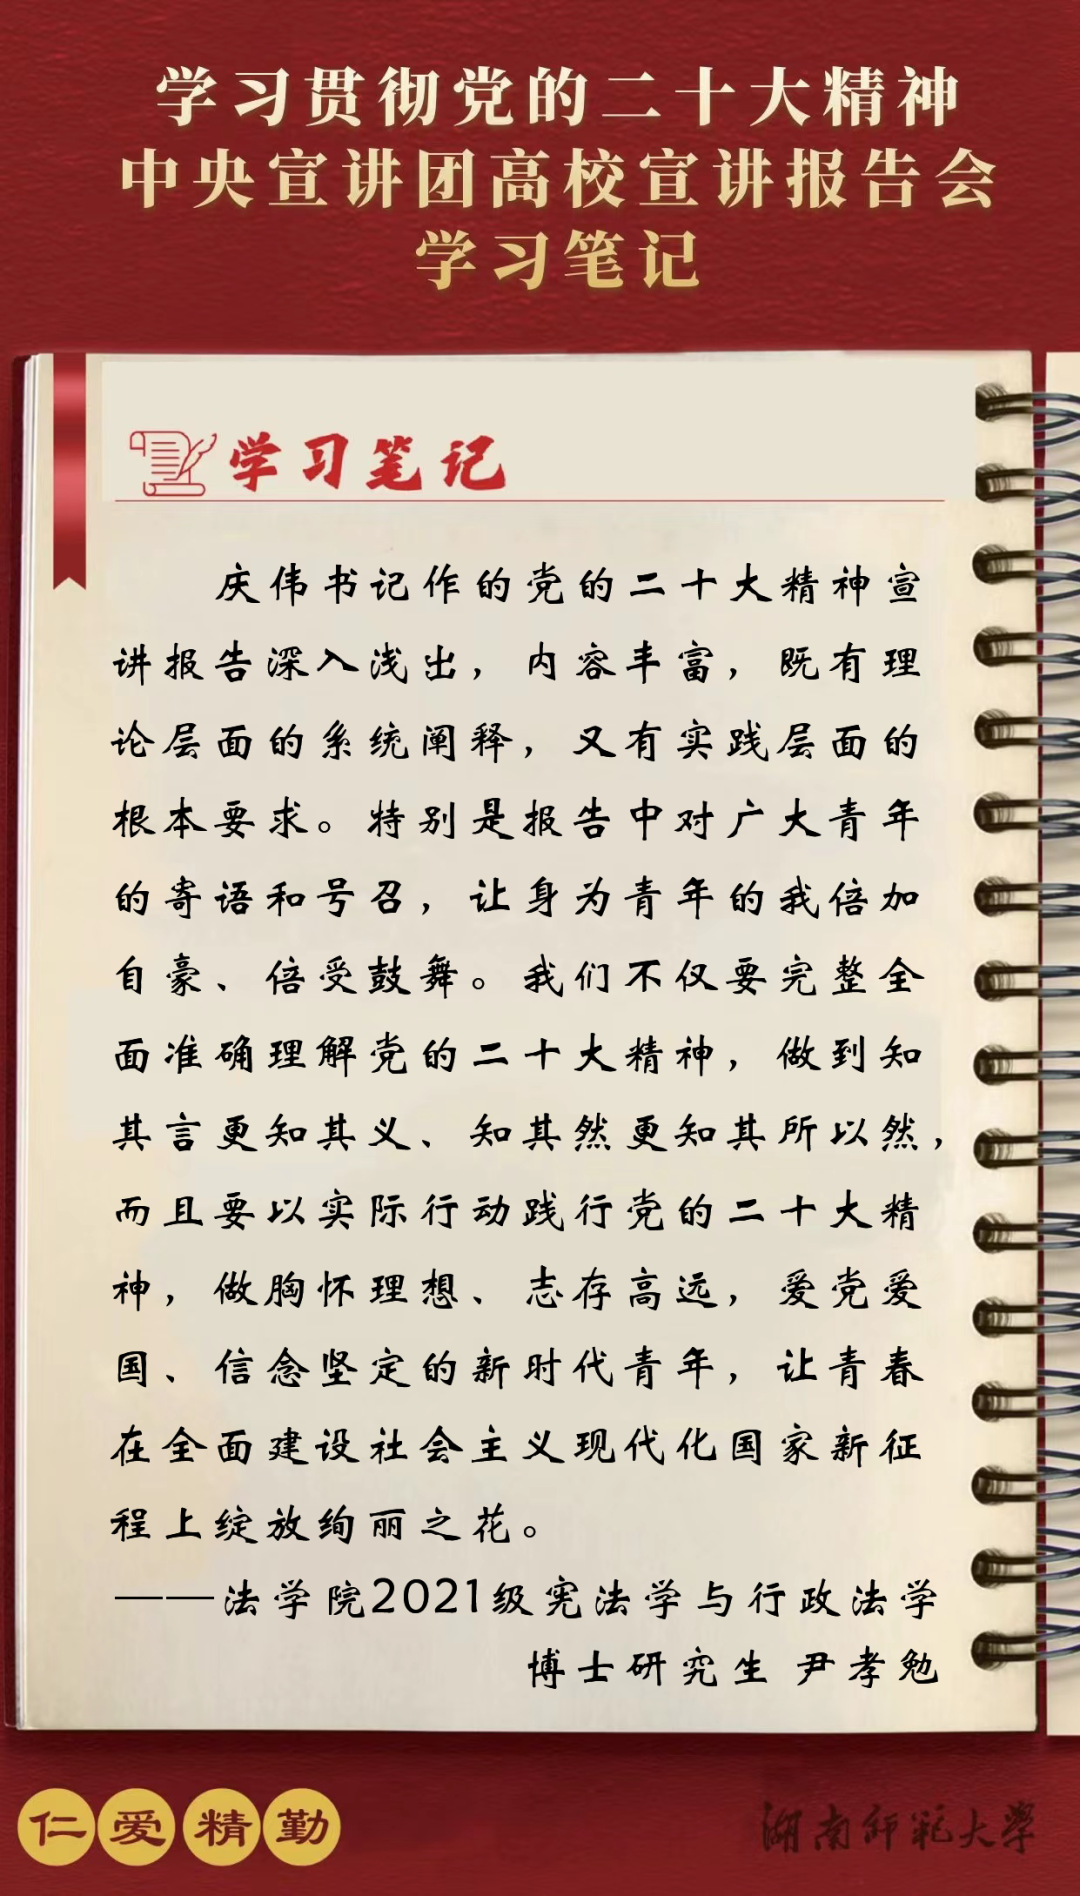 学习贯彻党的二十大精神
中央宣讲团高校宣讲报告会
学习笔记
学习笔记
庆伟书记作的党的二十大精神宣
讲报告深入浅出，内容丰富，既有理
论层面的系统阐释，又有实践层面的
根本要求。特别是报告中对广大青年
的寄语和号召，让身为青年的我倍加
自豪、倍受鼓舞。我们不仅要完整全
面准确理解党的二十大精神，做到知
其言更知其义、知其然更知其所以然，
而且要以实际行动践行党的二十大精
神，做胸怀理想、志存高远，爱党爱
国、信念坚定的新时代青年，让青春
在全面建设社会主义现代化国家新征
程上绽放绚丽之花。
——法学院2021级宪法学与行政法学
博士研究生 尹孝勉
仁爱精勤
湖南师范大学